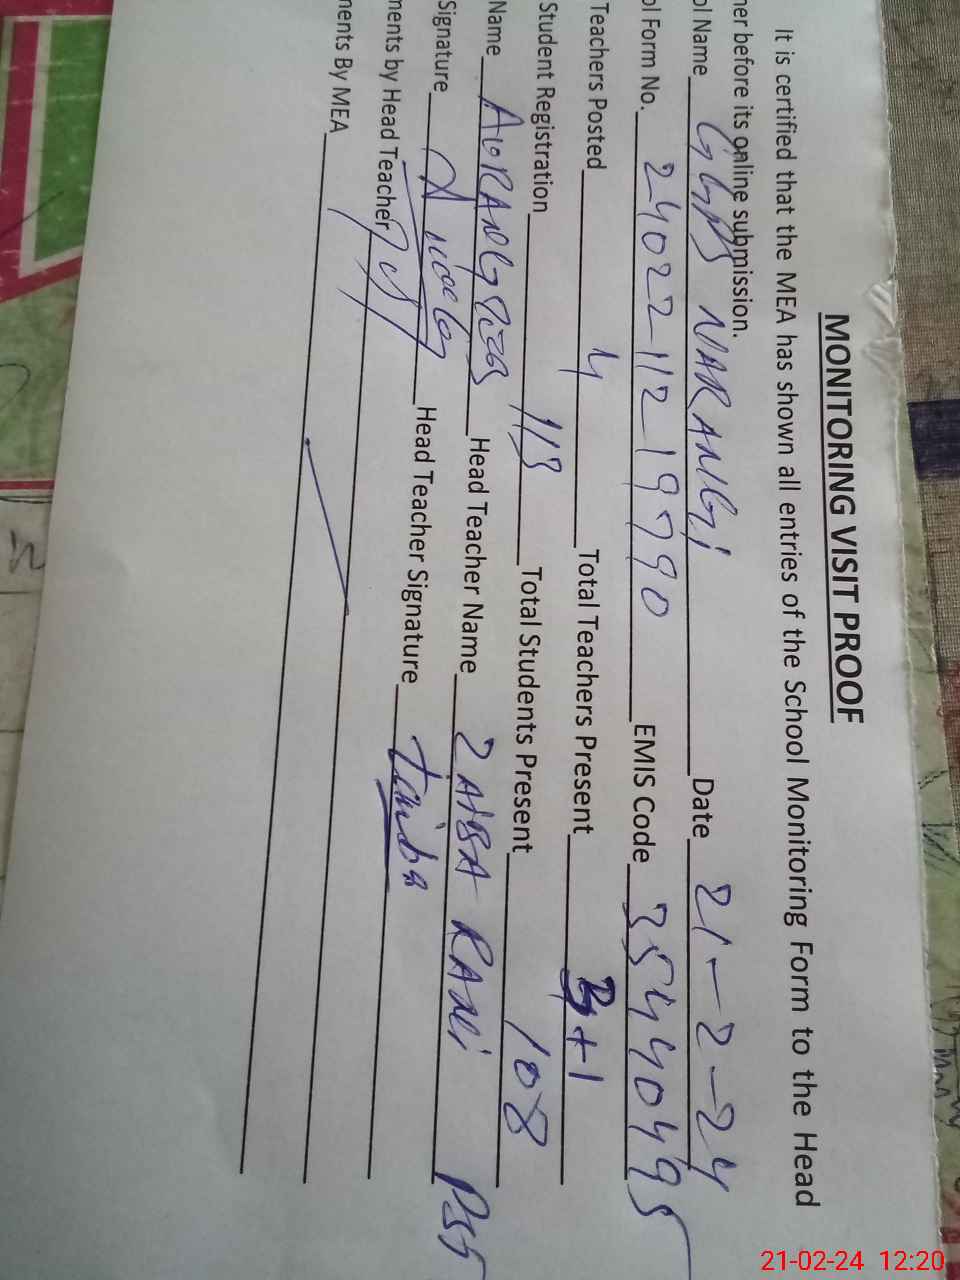 MONITORING VISIT PROOF
It is certified that the MEA has shown all entries of the School Monitoring Form to the Head
her before its online submission.
ol Name GGPS NARANGI Date 21-2-24
ol Form No. 24022112199790 EMIS Code 35440495
Teachers Posted 4 Total Teachers Present 3+1
Student Registration 113 Total Students Present 108
Name AURANGZEB Head Teacher Name ZAIBA RANI PST
Signature Head Teacher Signature
ments by Head Teacher
ments By MEA
21-02-24 12:20